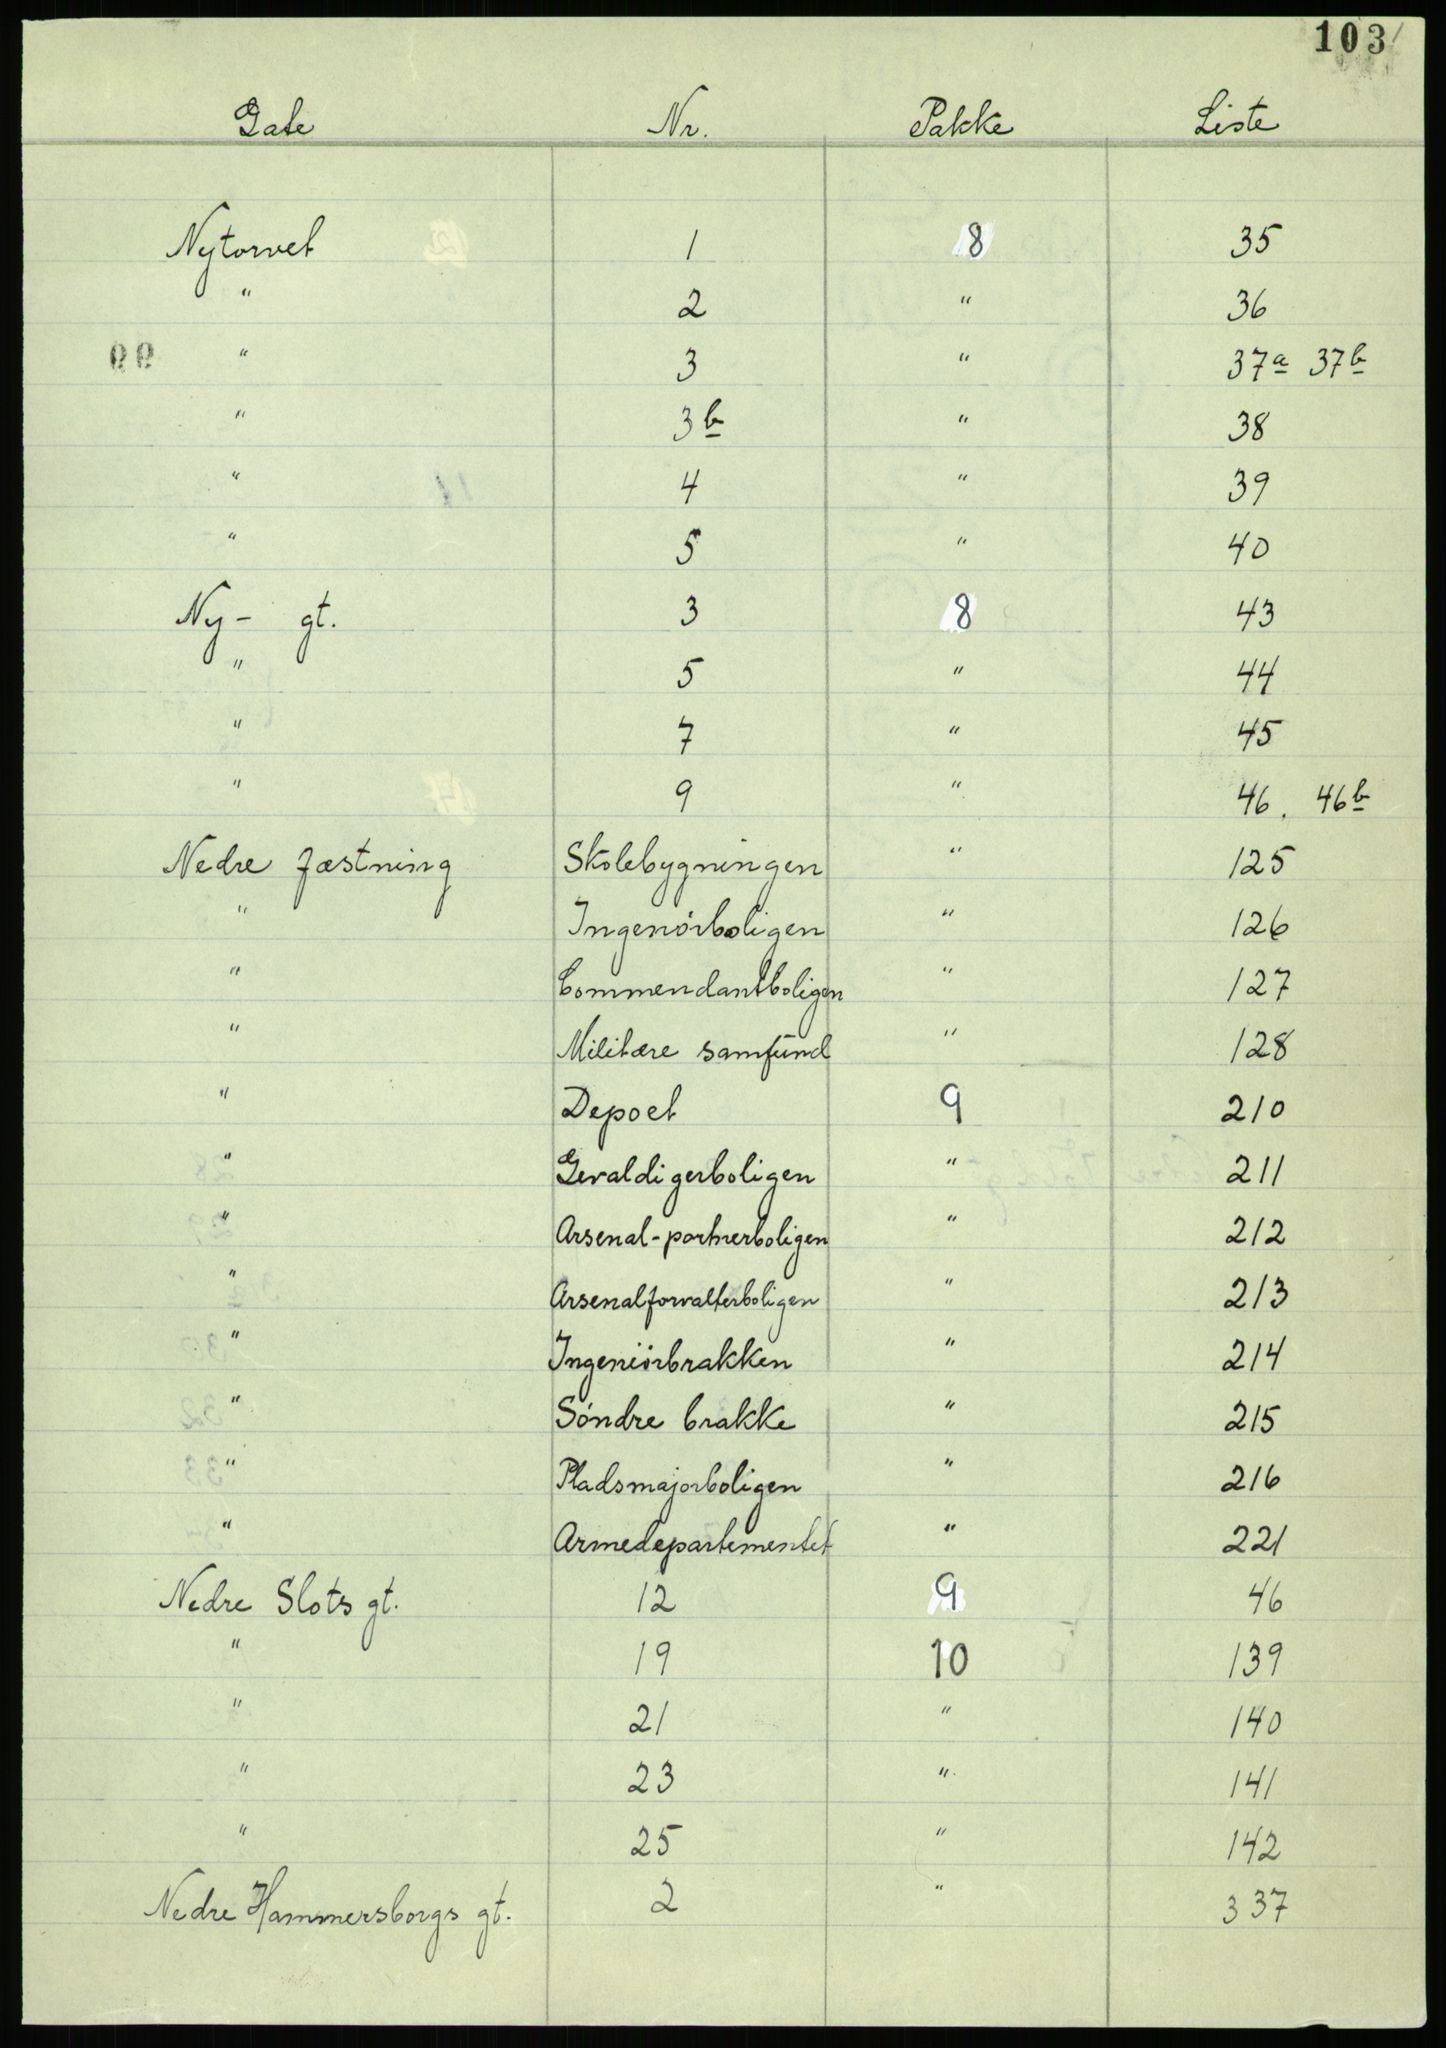 103
Gate Nr. Pakke Liste
Nytorvet 1 8 35
" 2 " 36
" 3 " 37a 37b
" 3b " 38
" 4 " 39
" 5 " 40
Ny- gt. 3 8 43
" 5 " 44
" 7 " 45
" 9 " 46. 46b
Nedre fæstning Skolebygningen " 125
" Ingenörboligen " 126
" Commendantboligen " 127
" Militære samfund " 128
" Depoet 9 210
" Gevaldigerboligen " 211
" Arsenal-portnerboligen " 212
" Arsenalforvalterboligen " 213
" Ingeniörbrakken " 214
" Söndre brakke " 215
" Pladsmajorboligen " 216
" Armedepartementet " 221
Nedre Slots gt. 12 9 46
" 19 10 139
" 21 " 140
" 23 " 141
" 25 " 142
Nedre Hammersborgs gt. 2 " 337